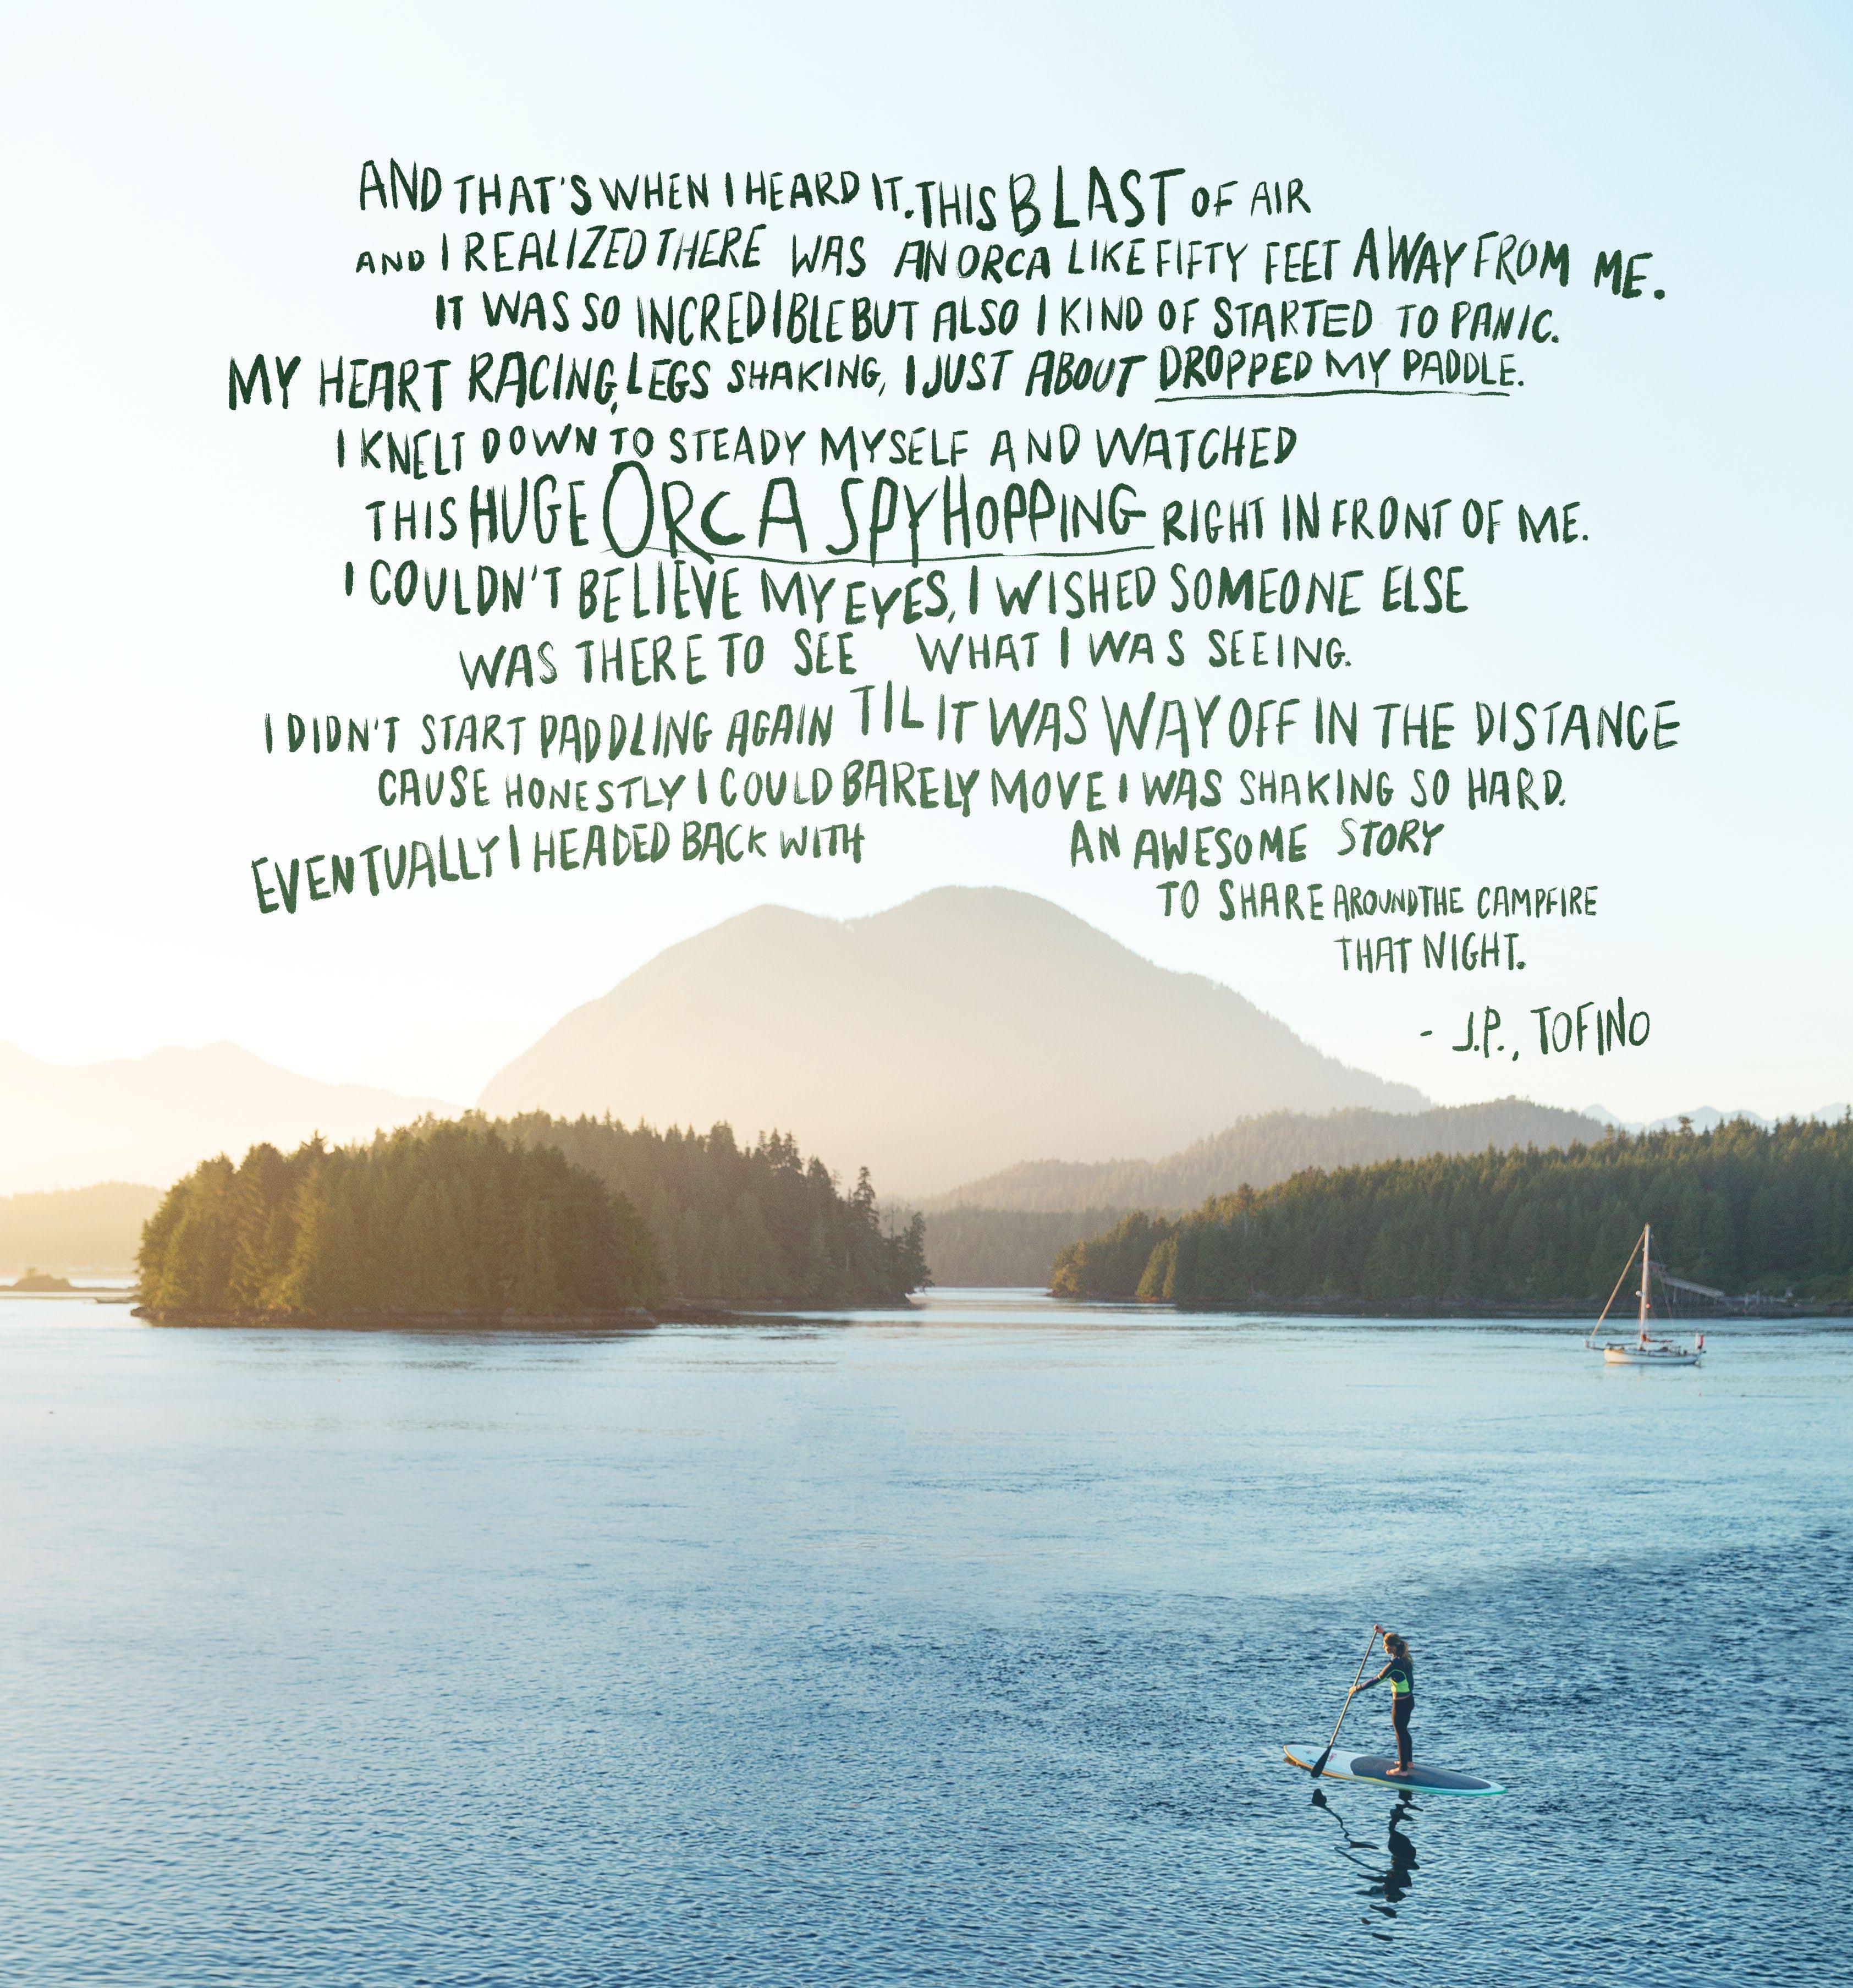 AND THAT'S WHEN I HEARD IT. THIS BLAST OF AIR
AND I REALIZED THERE WAS AN ORCA LIKE FIFTY FEET AWAY FROM ME.
IT WAS SO INCREDIBLE BUT ALSO I KIND OF STARTED TO PANIC.
MY HEART RACING, LEGS SHAKING, I JUST ABOUT DROPPED MY PADDLE.
I KNELT DOWN TO STEADY MYSELF AND WATCHED
THIS HUGE ORCA SPYHOPPING RIGHT IN FRONT OF ME.
I COULDN'T BELIEVE MY EYES, I WISHED SOMEONE ELSE
WAS THERE TO SEE WHAT I WAS SEEING.
I DIDN'T START PADDLING AGAIN TIL IT WAS WAY OFF IN THE DISTANCE
CAUSE HONESTLY I COULD BARELY MOVE I WAS SHAKING SO HARD.
EVENTUALLY I HEADED BACK WITH AN AWESOME STORY
TO SHARE AROUND THE CAMPFIRE
THAT NIGHT.
- J.P., TOFINO